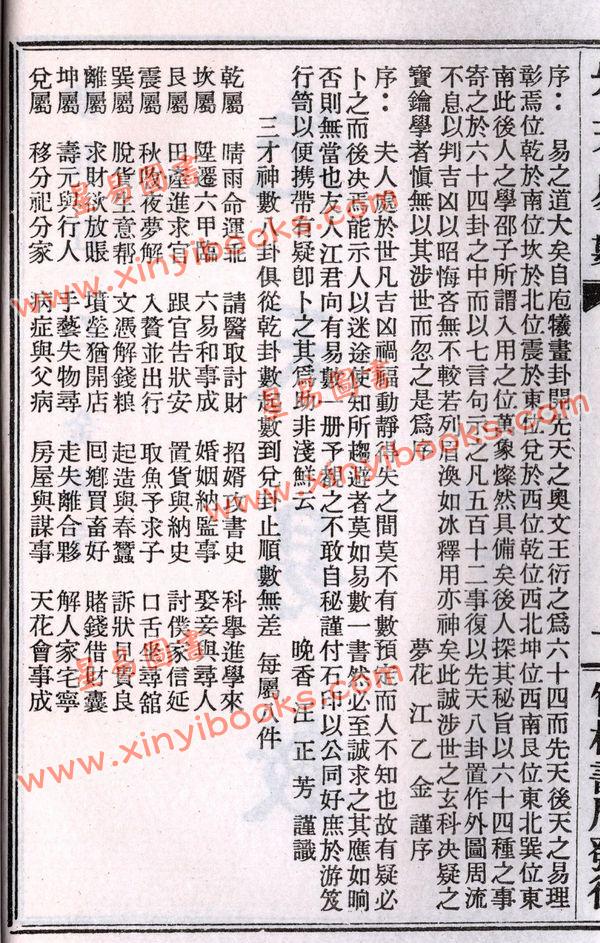 序：易之道大矣自庖犧畫卦開先天之奧文王衍之爲六十四而先天後天之易理
彰焉位乾於南位坎於北位震於東位兌於西位乾位西北坤位西南艮位東北巽位東
南此後人之學邵子所謂入用之位萬象燦然具備矣後人探其秘旨以六十四種之事
寄之於六十四卦之中而以七言句斷之凡五百十二事復以先天八卦置作外圖周流
不息以判吉凶以昭悔吝無不較若列眉渙如冰釋用亦神矣此誠涉世之玄科決疑之
寶鑰學者愼無以其涉世而忽之是爲序　夢花江乙金謹序
序：夫人處於世凡吉凶禍福動靜得失之間莫不有數預定而人不知也故有疑必
卜之而後決焉能示人以迷途使知所趨避者莫如易數一書然必至誠求之其應如晌
否則無當也友人江君向有易數一册予觀之不敢自秘謹付石印以公同好庶於游笈
行笥以便携帶有疑卽卜之其爲助非淺鮮云　晚香汪正芳謹識
三才神數八卦俱從乾卦數起數到兌卦止順數無差　每屬八件
乾屬　晴雨命運兆　請醫取討財　招婿攻書史　科舉進學來
坎屬　陞遷六甲臨　六易和事成　婚姻納監事　娶妾與尋人
艮屬　田產進求官　跟官告狀安　置貨與納史　討僕家信延
震屬　秋收夜夢解　入贅並出行　取魚予求子　口舌坐尋舘
巽屬　脫貨生意帮　文憑解錢粮　起造與春蠶　訴狀見貴良
離屬　求財欲放賬　墳塋猶開店　囘鄉買畜好　賭錢借財囊
坤屬　壽元與行人　手藝失物尋　走失離合夥　解人家宅寧
兌屬　移分祀分家　病症與父病　房屋與謀事　天花會事成
星易圖書
www.xinyibooks.com
星易圖書
www.xinyibooks.com
星易圖書
www.xinyibooks.com